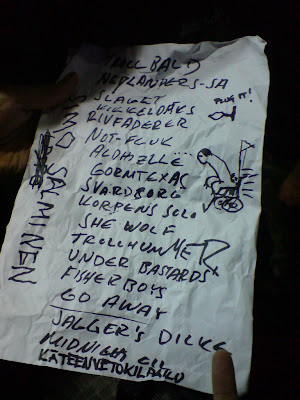 TROLLBALD
NEDLANDERS-SA
SLAGET
KIKKELDAKS
RIVFADERER
NOT-FLUK
ALDHIZLLE
GORMTEXAS
SVARDBORG
KORPENS SOLO
SHE WOLF
TROLLHUMMER
UNDER BASTARDS
FISHERBOYS
GO AWAY
JAGGER'S DICKS
MIDNIGHT
KÄTEENVETOKILPAILU
PLUG IT!
SIMO SALMINEN